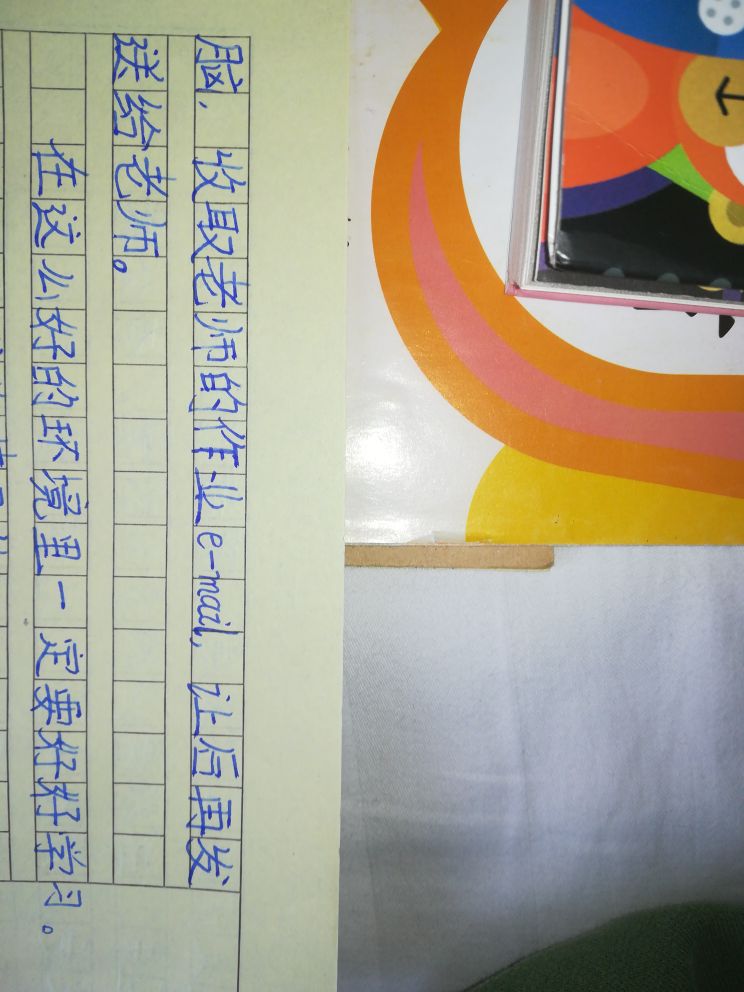 脑，收取老师的作业e-mail，让后再发
送给老师。
在这么好的环境里一定要好好学习。